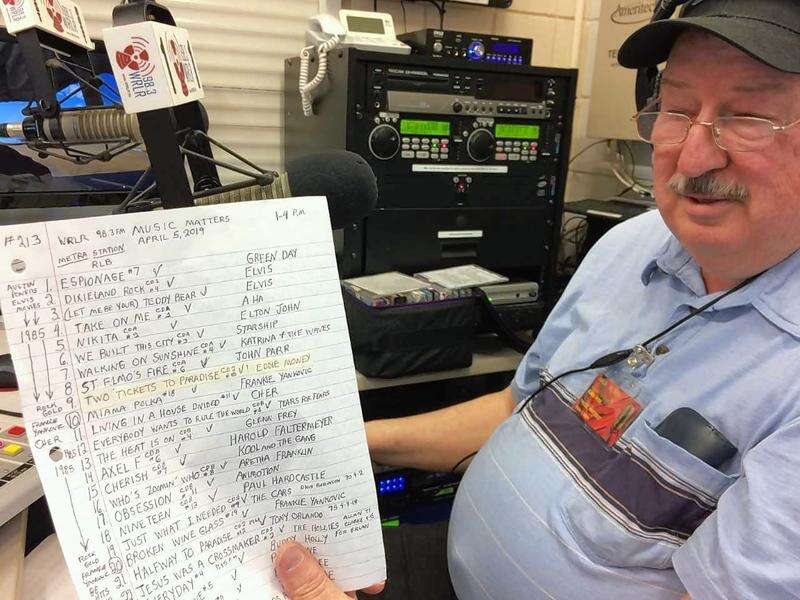 WRLR
98.3
WRLR
Ameritech
#213 WRLR 98.3 FM MUSIC MATTERS 1-4 P.M
METRA STATION APRIL 5, 2019
RLB
AUSTIN POWERS 1. ESPIONAGE #7 ✓ GREEN DAY
ELVIS MOVIES 2. DIXIELAND ROCK CD2 #4 ✓ ELVIS
3. (LET ME BE YOUR) TEDDY BEAR ✓ ELVIS
1985 4. TAKE ON ME CDA #2 ✓ A HA
5. NIKITA CDA #2 ✓ ELTON JOHN
6. WE BUILT THIS CITY CDA #3 ✓ STARSHIP
7. WALKING ON SUNSHINE CDA #4 ✓ KATRINA & THE WAVES
8 ST ELMO'S FIRE CDA #6 ✓ JOHN PARR
ROCK GOLD 9 TWO TICKETS TO PARADISE ✓! EDDIE MONEY
FRANKIE YANKOVIC 10 MIAMA POLKA #18 ✓ FRANKIE YANKOVIC
CHER 11 LIVING IN A HOUSE DIVIDED #11 ✓ CHER
1985 12 EVERYBODY WANTS TO RULE THE WORLD ✓ TEARS FOR FEARS
13 THE HEAT IS ON CDA #4 ✓ GLENN FREY
14 AXEL F ✓ HAROLD FALTERMEYER
15 CHERISH ✓ KOOL AND THE GANG
16 WHO'S ZOOMIN' WHO ✓ ARETHA FRANKLIN
17 OBSESSION ✓ ANIMOTION
18 NINETEEN ✓ PAUL HARDCASTLE
ROCK GOLD 19 JUST WHAT I NEEDED ✓ THE CARS
FRANKIE YANKOVIC 20 BROKEN WINE GLASS ✓ FRANKIE YANKOVIC
21 HALFWAY TO PARADISE ✓ TONY ORLANDO
22 JESUS WAS A CROSSMAKER ✓ THE HOLLIES
EVERYDAY ✓ BUDDY HOLLY